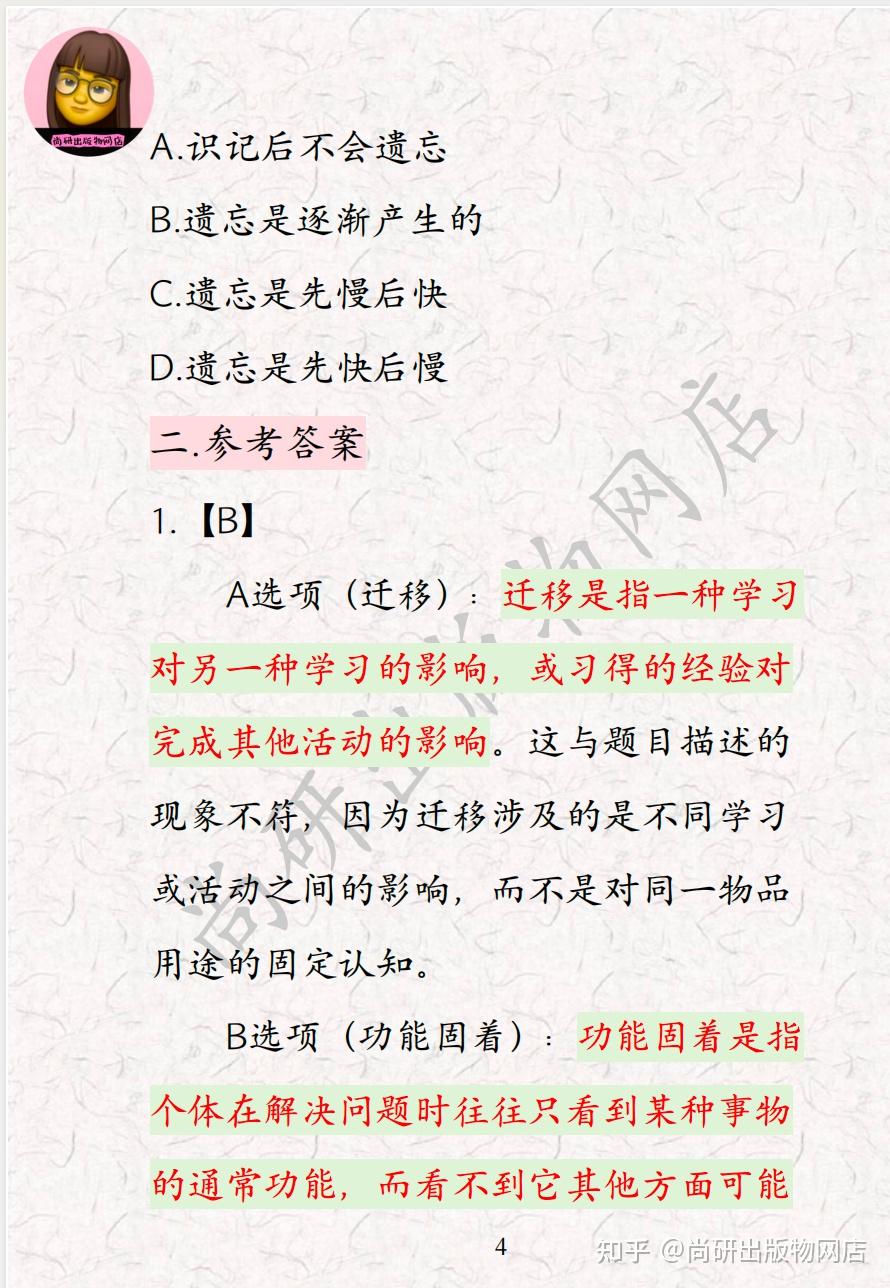 尚研出版物网店
A.识记后不会遗忘
B.遗忘是逐渐产生的
C.遗忘是先慢后快
D.遗忘是先快后慢
二.参考答案
1.【B】
A选项（迁移）：迁移是指一种学习
对另一种学习的影响，或习得的经验对
完成其他活动的影响。这与题目描述的
现象不符，因为迁移涉及的是不同学习
或活动之间的影响，而不是对同一物品
用途的固定认知。
B选项（功能固着）：功能固着是指
个体在解决问题时往往只看到某种事物
的通常功能，而看不到它其他方面可能
尚研出版物网店
4
知乎 @尚研出版物网店